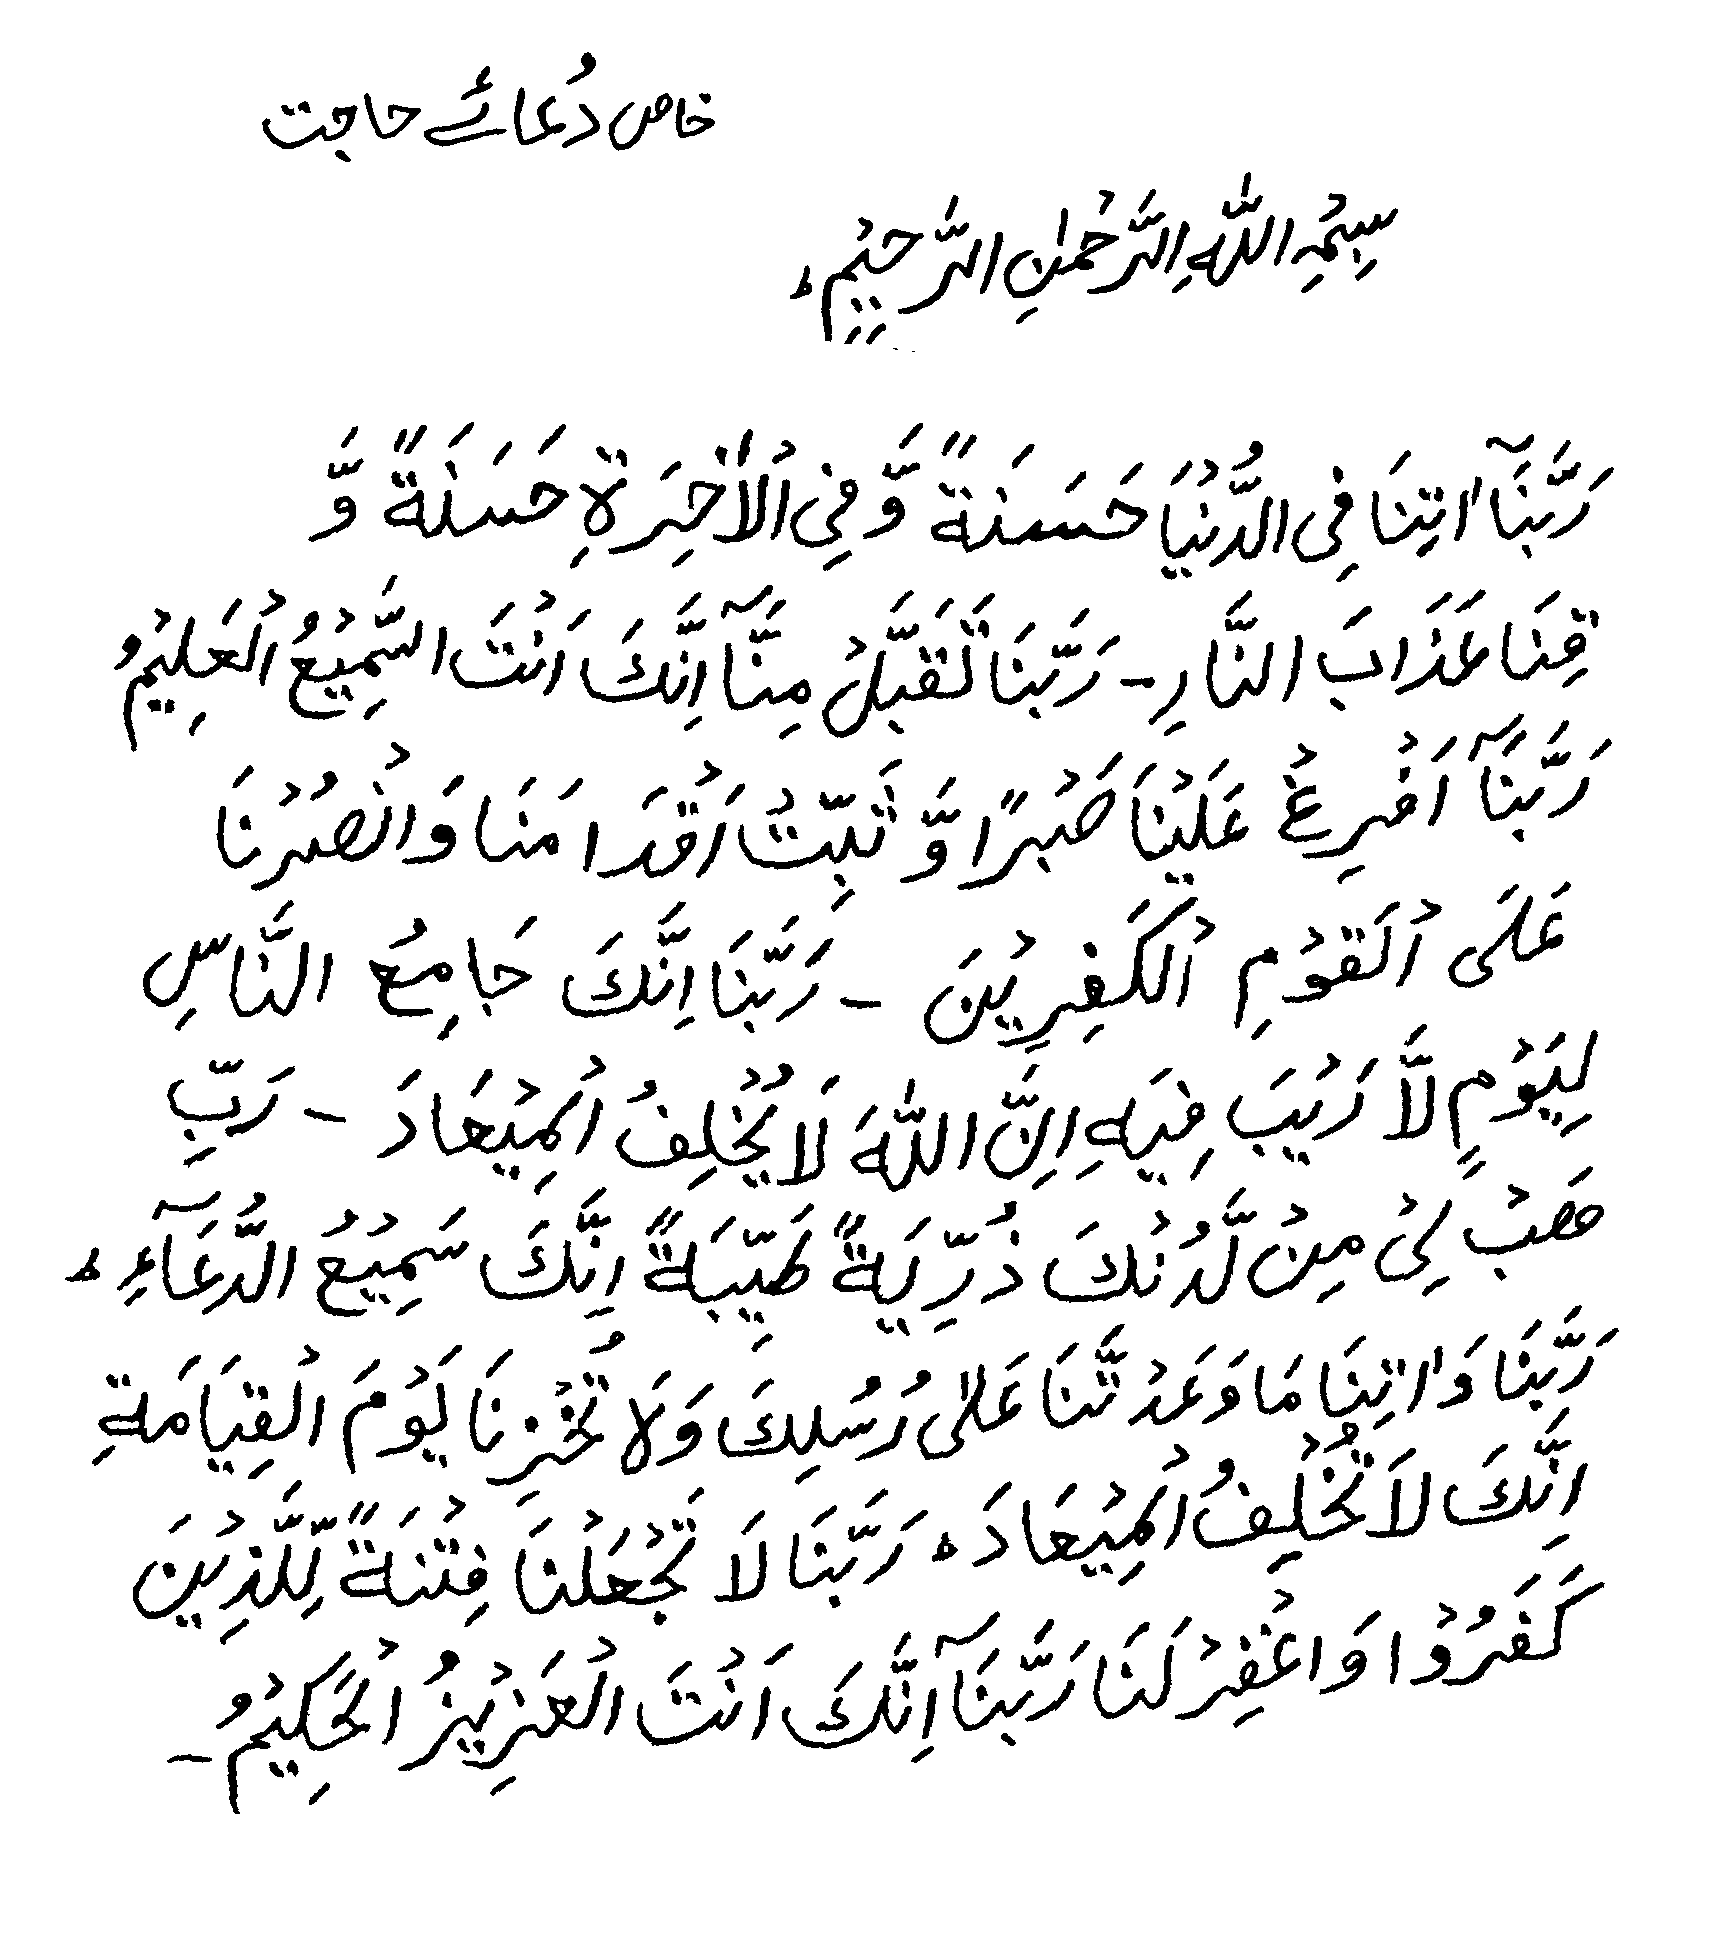 خاص دُعائے حاجت
بِسْمِ اللّٰهِ الرَّحْمٰنِ الرَّحِيْمِ ؕ
رَبَّنَآ اٰتِنَا فِى الدُّنْيَا حَسَنَةً وَّ فِى الْاٰخِرَةِ حَسَنَةً وَّ
قِنَا عَذَابَ النَّارِ - رَبَّنَا تَقَبَّلْ مِنَّآ اِنَّكَ اَنْتَ السَّمِيْعُ الْعَلِيْمُ
رَبَّنَآ اَفْرِغْ عَلَيْنَا صَبْرًا وَّ ثَبِّتْ اَقْدَامَنَا وَانْصُرْنَا
عَلَى الْقَوْمِ الْكٰفِرِيْنَ - رَبَّنَا اِنَّكَ جَامِعُ النَّاسِ
لِيَوْمٍ لَّا رَيْبَ فِيْهِ اِنَّ اللّٰهَ لَا يُخْلِفُ الْمِيْعَادَ - رَبِّ
هَبْ لِىْ مِنْ لَّدُنْكَ ذُرِّيَةً طَيِّبَةً اِنَّكَ سَمِيْعُ الدُّعَآءِ ؕ
رَبَّنَا وَاٰتِنَا مَا وَعَدْتَّنَا عَلٰى رُسُلِكَ وَلَا تُخْزِنَا يَوْمَ الْقِيَامَةِ
اِنَّكَ لَا تُخْلِفُ الْمِيْعَادَ ؕ رَبَّنَا لَا تَجْعَلْنَا فِتْنَةً لِّلَّذِيْنَ
كَفَرُوْا وَاغْفِرْ لَنَا رَبَّنَآ اِنَّكَ اَنْتَ الْعَزِيْزُ الْحَكِيْمُ -